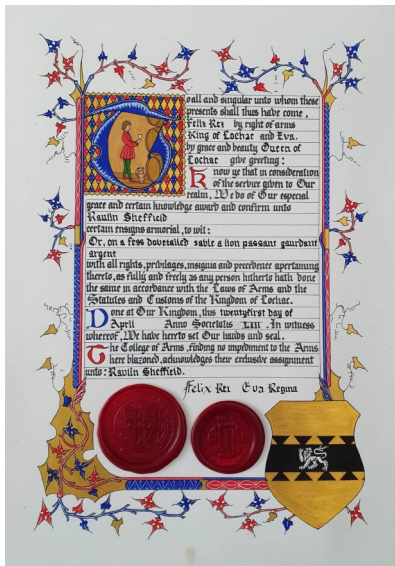 To all and singular unto whom these
presents shall thus have come,
Felix Rex by right of arms
King of Lochac and Eva.
by grace and beauty Queen of
Lochac give greeting:
Know ye that in consideration
of the service given to Our
realm, We do of Our especial
grace and certain knowledge award and confirm unto
Ravlin Sheffield
certain ensigns armorial, to wit:
Or, on a fess dovetailed sable a lion passant gaurdant
argent
with all rights, privilages, insignia and precedence apertaining
thereto, as fully and freely as any person hitherto hath done
the same in accordance with the Laws of Arms and the
Statutes and Customs of the Kingdom of Lochac.
Done at Our Kingdom, this twentyfirst day of
April Anno Societatis LIII. In witness
whereof, We have hereto set Our hands and seal.
The College of Arms, finding no impediment to the Arms
here blazoned, acknowledges their exclusive assignment
unto: Ravlin Sheffield.
Felix Rex Eva Regina